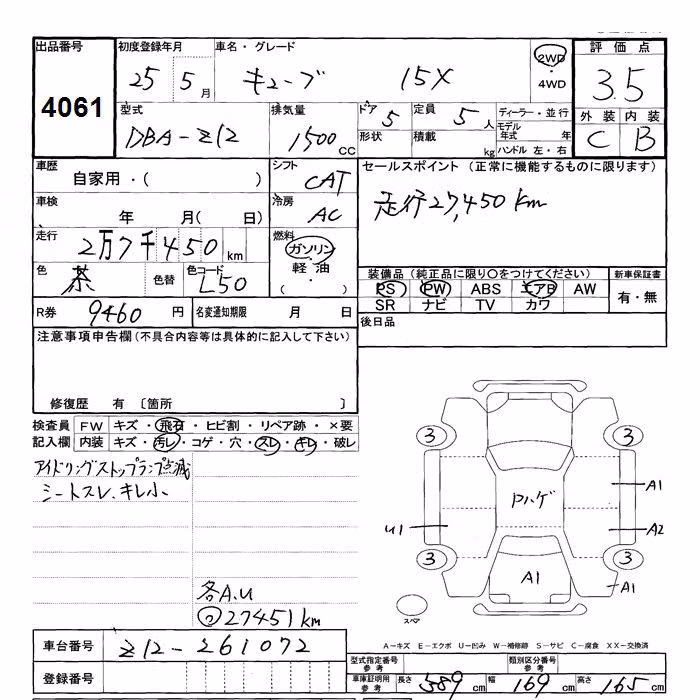 出品番号 初度登録年月 車名・グレード 2WD 評価点
4061 25 5 月 キューブ 15X 4WD 3.5
型式 排気量 ドア 5 定員 5 人 ディーラー・並行 外装 内装
DBA-Z12 1500 cc 形状 積載 kg モデル年式 年 C B
ハンドル 左・右
車歴 シフト セールスポイント (正常に機能するものに限ります)
自家用・( ) CAT
車検 冷房 走行27,450km
年 月( 日) AC
走行 燃料
2万7千450 km ガソリン
色 茶 色替 色コード L50 軽油 ( ・ )
装備品 (純正品に限り〇をつけてください) 新車保証書
PS PW ABS エアB AW 有・無
SR ナビ TV カワ
R券 9460 円 名変通知期限 月 日 後日品
注意事項申告欄 (不具合内容等は具体的に記入して下さい)
修復歴 有 〔箇所 〕
検査員 FW キズ・飛石・ヒビ割・リペア跡・×要
記入欄 内装 キズ・汚レ・コゲ・穴・スレ・キレ・破レ
アイドリングストップランプ点滅
シートスレ、キレ小
各A.U
27451km
3 3
A1
Pハゲ
U1 A2
3 3
A1 A1
スペア
A-キズ E-エクボ U-凹み W-補修跡 S-サビ C-腐食 XX-交換済
車台番号 Z12-261072
登録番号
型式指定番号 参考 類別区分番号 参考
車庫証明用 参考 長さ 389 cm 幅 169 cm 高さ 165 cm